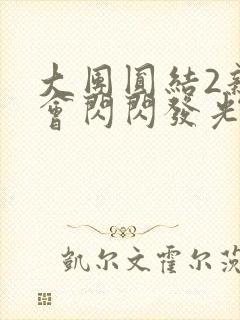 大團圓結2新
會閃閃發光
凱尔文霍尔茨